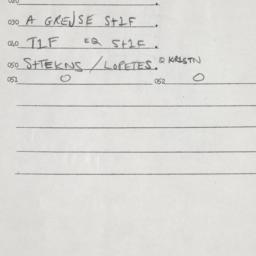 030 A GREUSE St1F .
040 T1F EQ St1C .
050 StTEKNS / LOPETES. @ KRISTN
051 0 052 0